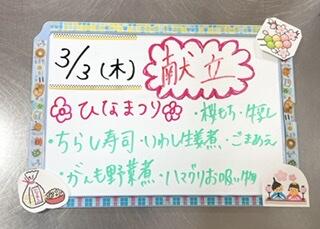 3/3(木) 献立
ひなまつり ・桜もち・牛乳
・ちらし寿司・いわし生姜煮・ごまあえ
・がんも野菜煮・ハマグリお吸い物